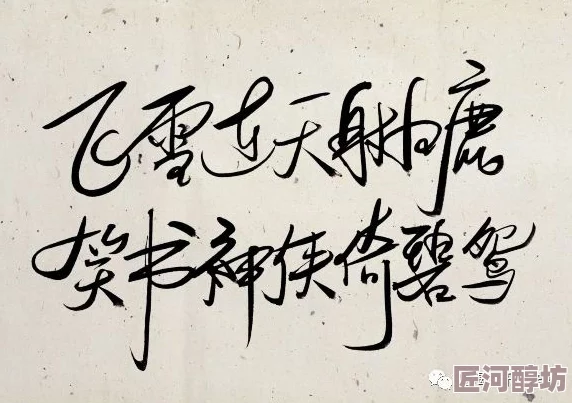 飞雪连天射白鹿
笑书神侠倚碧鸳
匠河醇坊